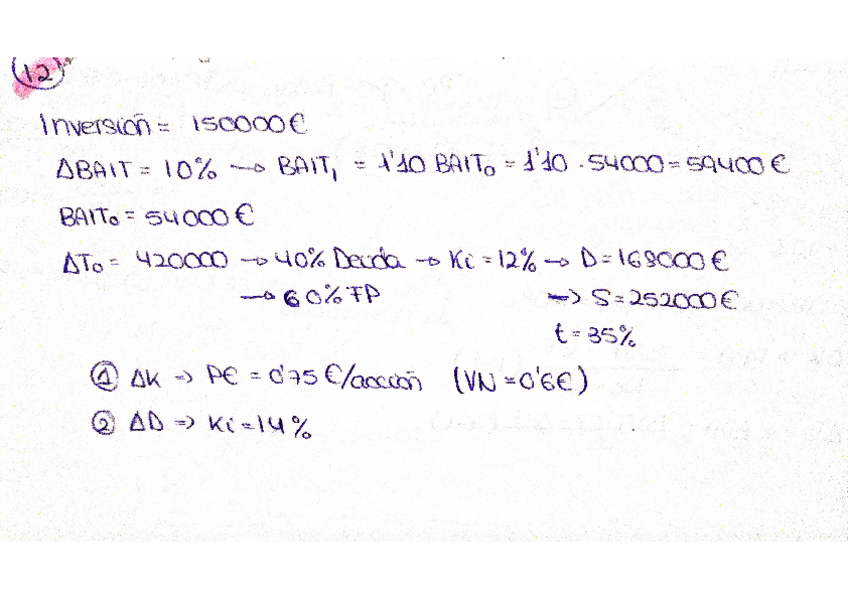 12
Inversión = 150000€
ΔBAIT = 10% → BAIT₁ = 1'10 BAIT₀ = 1'10 · 54000 = 59400€
BAIT₀ = 54000€
ΔT₀ = 420000 → 40% Deuda → Ki = 12% → D = 168000€
→ 60% FP → S = 252000€
t = 35%
① ΔK => PE = 0'75 €/acción (VN = 0'6€)
② ΔD => Ki = 14%